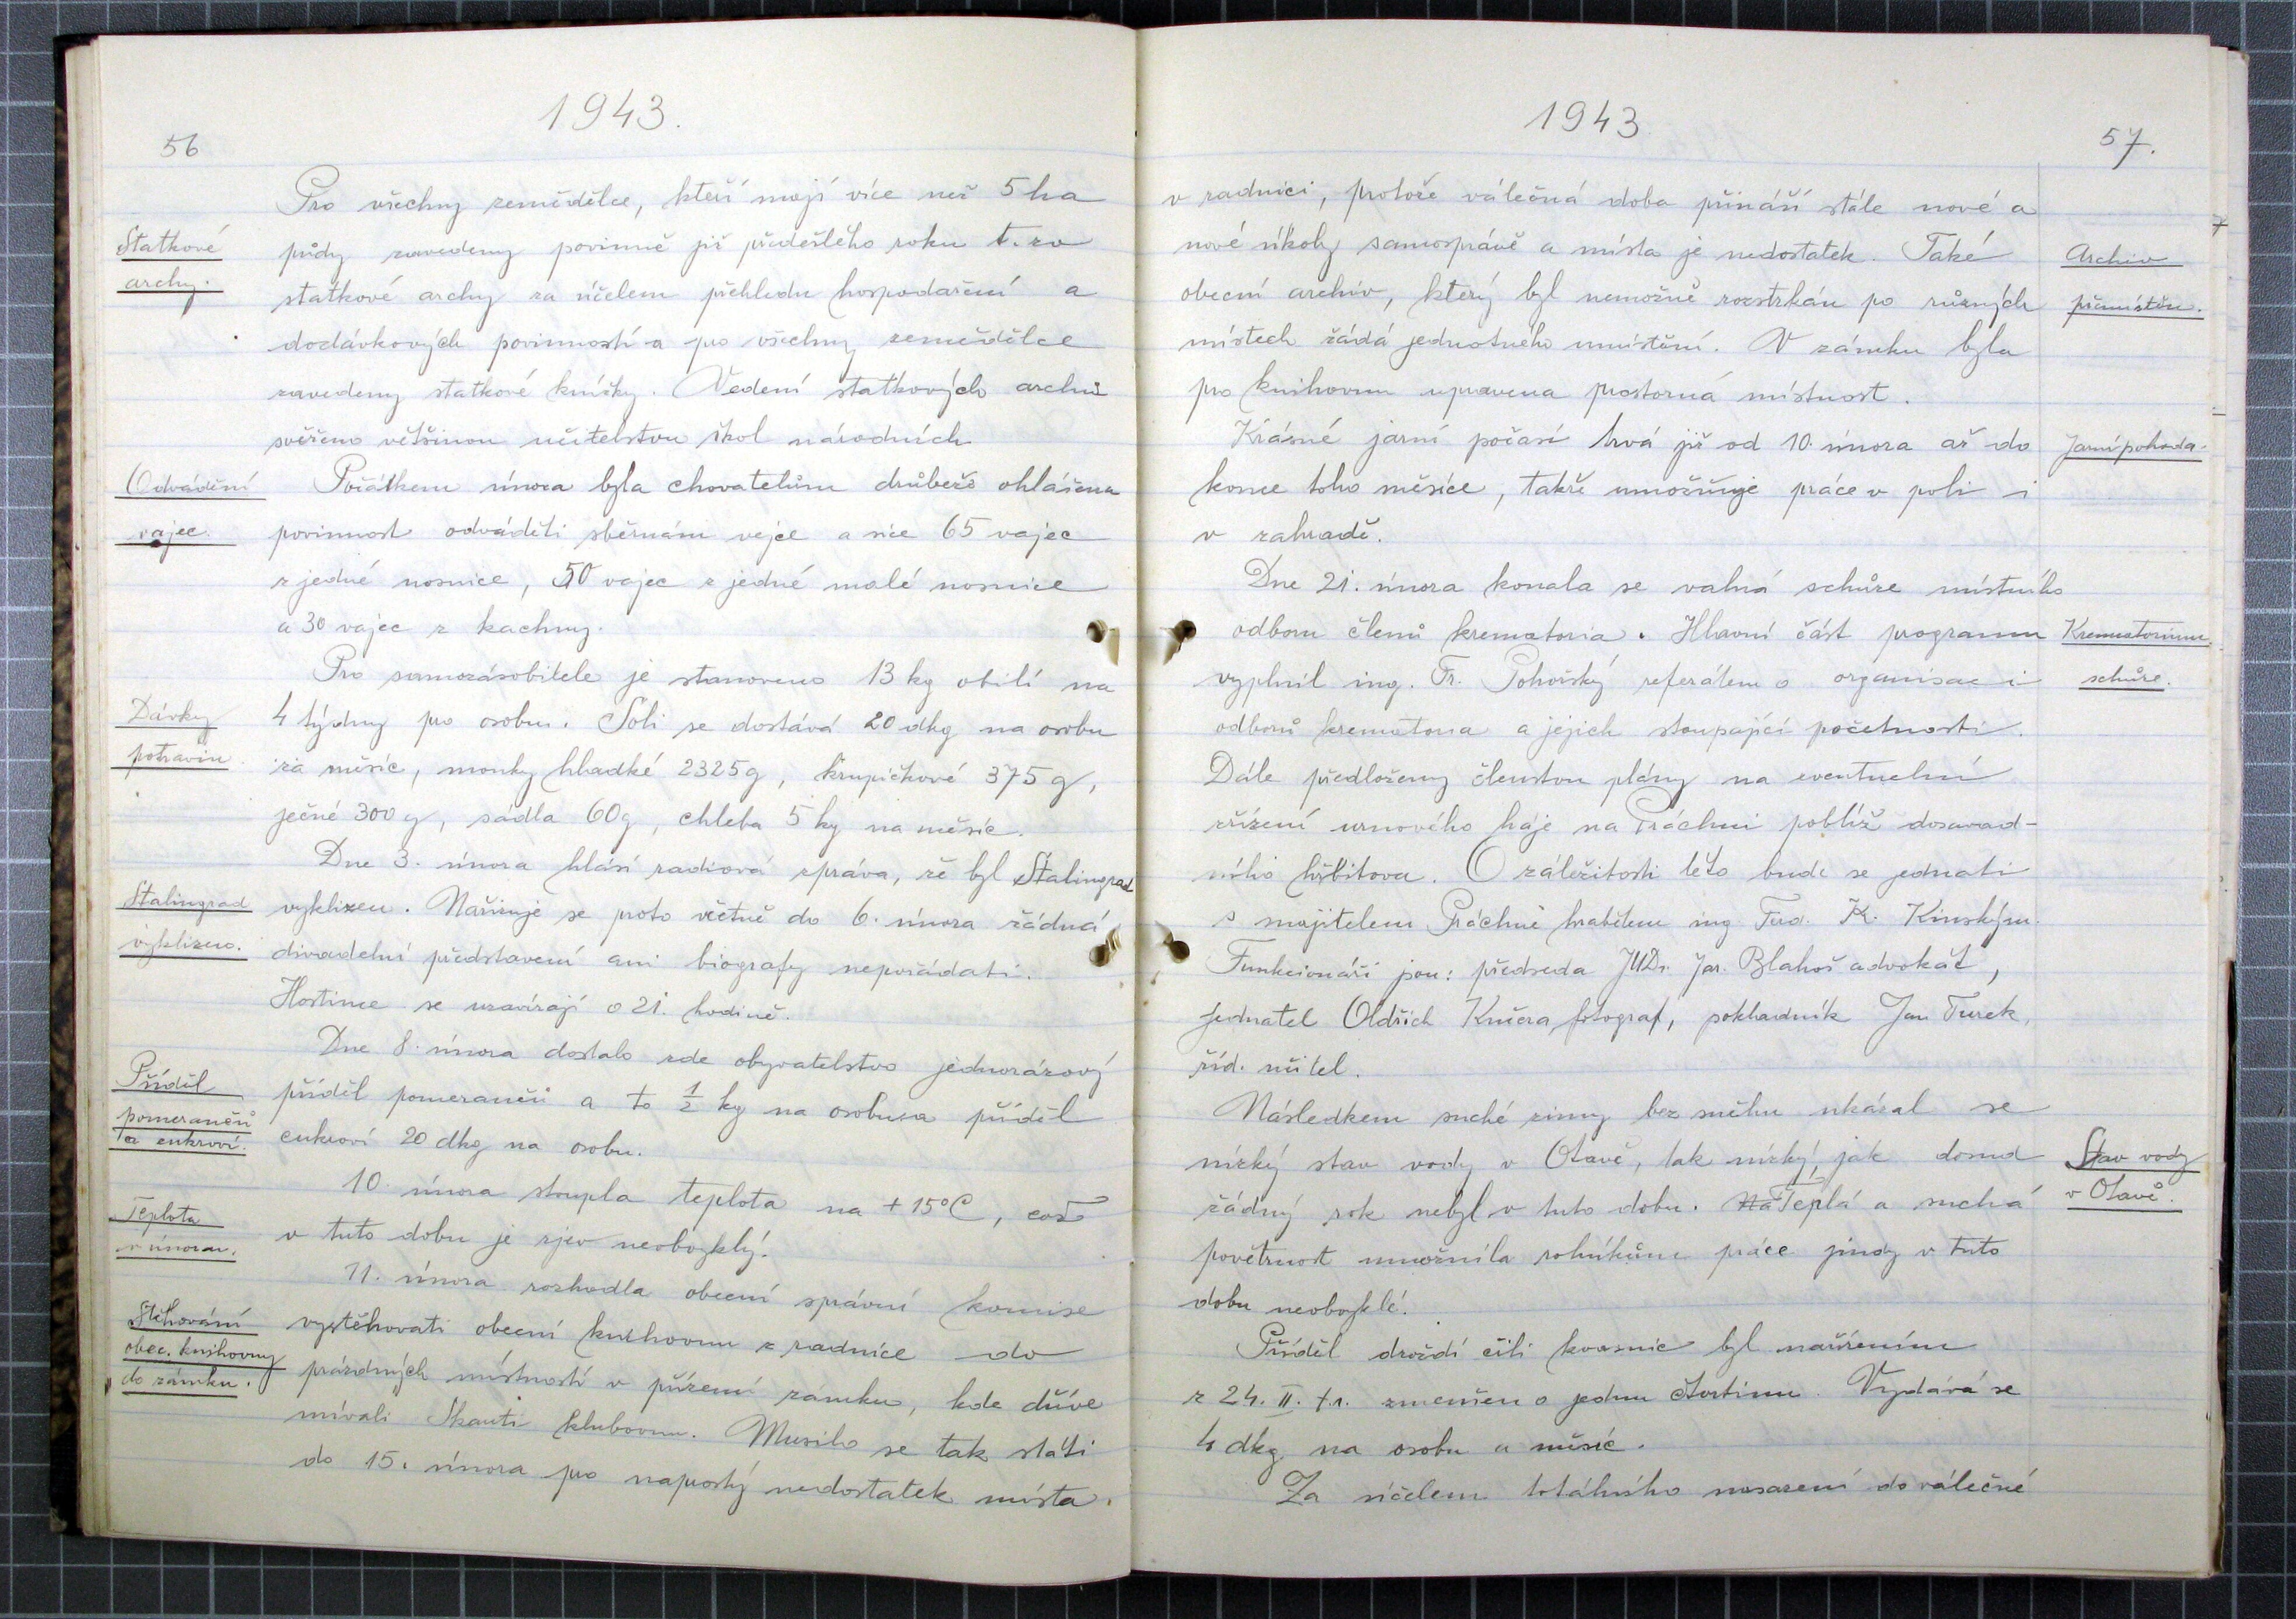 1943.
56
Pro všechny zemědělce, kteří mají více než 5 ha
Statkové
archy.
půdy zavedeny povinně již předešlého roku t. zv
statkové archy za účelem přehledu hospodaření a
dodávkových povinností a pro všechny zemědělce
zavedeny statkové knížky. Vedení statkových archů
svěřeno většinou učitelstvu škol národních
Odvádění
vajec.
Počátkem února byla chovatelům drůbeže ohlášena
povinnost odváděti sběrnám vejce a sice 65 vajec
z jedné nosnice, 50 vajec z jedné malé nosnice
a 30 vajec z kachny.
Pro samozásobitele je stanoveno 13 kg obilí na
Dávky
potravin.
4 týdny pro osobu. Soli se dostává 20 dkg na osobu
za měsíc, mouky hladké 2325 g, krupičkové 375 g,
ječné 300 g, sádla 60 g, chleba 5 kg na měsíc.
Dne 3. února hlásí radiová zpráva, že byl Stalingrad
Stalingrad
vyklizen.
vyklizen. Nařizuje se proto včetně do 6. února žádná
divadelní představení ani biografy nepořádati.
Hostince se uzavírají o 21. hodině.
Dne 8. února dostalo zde obyvatelstvo jednorázový
Příděl
pomerančů
a cukroví.
příděl pomerančů a to 1/2 kg na osobu a příděl
cukroví 20 dkg na osobu.
10. února stoupla teplota na + 15°C, což
Teplota
v únoru.
v tuto dobu je zjev neobvyklý.
11. února rozhodla obecní správní komise
Stěhování
obec. knihovny
do zámku.
vystěhovati obecní knihovnu z radnice do
prázdných místností v přízemí zámku, kde dříve
mívali Skauti klubovnu. Musilo se tak státi
do 15. února pro naprostý nedostatek místa.
1943
57.
v radnici, protože válečná doba přináší stále nové a
nové úkoly samosprávě a místa je nedostatek. Také
Archiv
přemístěn.
obecní archiv, který byl nemožně rozstrkán po různých
místech žádá jednotného umístění. V zámku byla
pro knihovnu upravena prostorná místnost.
Krásné jarní počasí trvá již od 10. února až do
Jarní pohoda.
konce toho měsíce, takže umožňuje práce v poli i
v zahradě.
Dne 21. února konala se valná schůze místního
odboru členů krematoria. Hlavní část programu
Krematorium,
schůze.
vyplnil ing. Fr. Pohorský referátem o organisac i
odborů krematoria a jejich stoupající početnosti.
Dále předloženy členstvu plány na eventuelní
zřízení urnového háje na Práchni poblíž dosavad-
ního hřbitova. O záležitosti této bude se jednati
s majitelem Práchně hrabětem ing. Ferd. K. Kinským.
Funkcionáři jsou: předseda JUDr. Jar. Blahoš advokát,
jednatel Oldřich Kučera fotograf, pokladník Jan Turek,
říd. učitel.
Následkem suché zimy bez sněhu ukázal se
nízký stav vody v Otavě, tak nízký, jak dosud
Stav vody
v Otavě.
žádný rok nebyl v tuto dobu. Na Teplá a suchá
povětrnost umožnila rolníkům práce jindy v tuto
dobu neobvyklé.
Příděl droždí čili kvasnic byl nařízením
z 24. II. t. r. zmenšen o jednu čtvrtinu. Vydává se
4 dkg na osobu a měsíc.
Za účelem totálního nasazení do válečné